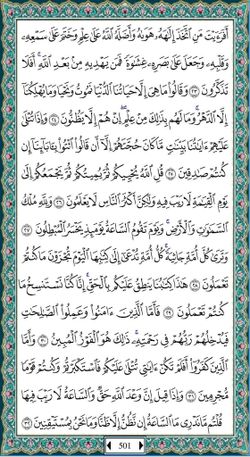 أَفَرَءَيْتَ مَنِ ٱتَّخَذَ إِلَٰهَهُۥ هَوَىٰهُ وَأَضَلَّهُ ٱللَّهُ عَلَىٰ عِلْمٍ وَخَتَمَ عَلَىٰ سَمْعِهِۦ
وَقَلْبِهِۦ وَجَعَلَ عَلَىٰ بَصَرِهِۦ غِشَٰوَةً فَمَن يَهْدِيهِ مِنۢ بَعْدِ ٱللَّهِ ۚ أَفَلَا
تَذَكَّرُونَ ٢٣ وَقَالُوا۟ مَا هِىَ إِلَّا حَيَاتُنَا ٱلدُّنْيَا نَمُوتُ وَنَحْيَا وَمَا يُهْلِكُنَآ
إِلَّا ٱلدَّهْرُ ۚ وَمَا لَهُم بِذَٰلِكَ مِنْ عِلْمٍ ۖ إِنْ هُمْ إِلَّا يَظُنُّونَ ٢٤ وَإِذَا تُتْلَىٰ
عَلَيْهِمْ ءَايَٰتُنَا بَيِّنَٰتٍ مَّا كَانَ حُجَّتَهُمْ إِلَّآ أَن قَالُوا۟ ٱئْتُوا۟ بِـَٔابَآئِنَآ إِن
كُنتُمْ صَٰدِقِينَ ٢٥ قُلِ ٱللَّهُ يُحْيِيكُمْ ثُمَّ يُمِيتُكُمْ ثُمَّ يَجْمَعُكُمْ إِلَىٰ
يَوْمِ ٱلْقِيَٰمَةِ لَا رَيْبَ فِيهِ وَلَٰكِنَّ أَكْثَرَ ٱلنَّاسِ لَا يَعْلَمُونَ ٢٦ وَلِلَّهِ مُلْكُ
ٱلسَّمَٰوَٰتِ وَٱلْأَرْضِ ۚ وَيَوْمَ تَقُومُ ٱلسَّاعَةُ يَوْمَئِذٍ يَخْسَرُ ٱلْمُبْطِلُونَ ٢٧
وَتَرَىٰ كُلَّ أُمَّةٍ جَاثِيَةً ۚ كُلُّ أُمَّةٍ تُدْعَىٰٓ إِلَىٰ كِتَٰبِهَا ٱلْيَوْمَ تُجْزَوْنَ مَا كُنتُمْ
تَعْمَلُونَ ٢٨ هَٰذَا كِتَٰبُنَا يَنطِقُ عَلَيْكُم بِٱلْحَقِّ ۚ إِنَّا كُنَّا نَسْتَنسِخُ مَا
كُنتُمْ تَعْمَلُونَ ٢٩ فَأَمَّا ٱلَّذِينَ ءَامَنُوا۟ وَعَمِلُوا۟ ٱلصَّٰلِحَٰتِ
فَيُدْخِلُهُمْ رَبُّهُمْ فِى رَحْمَتِهِۦ ۚ ذَٰلِكَ هُوَ ٱلْفَوْزُ ٱلْمُبِينُ ٣٠ وَأَمَّا
ٱلَّذِينَ كَفَرُوٓا۟ أَفَلَمْ تَكُنْ ءَايَٰتِى تُتْلَىٰ عَلَيْكُمْ فَٱسْتَكْبَرْتُمْ وَكُنتُمْ قَوْمًا
مُّجْرِمِينَ ٣١ وَإِذَا قِيلَ إِنَّ وَعْدَ ٱللَّهِ حَقٌّ وَٱلسَّاعَةُ لَا رَيْبَ فِيهَا
قُلْتُم مَّا نَدْرِى مَا ٱلسَّاعَةُ إِن نَّظُنُّ إِلَّا ظَنًّا وَمَا نَحْنُ بِمُسْتَيْقِنِينَ ٣٢
501